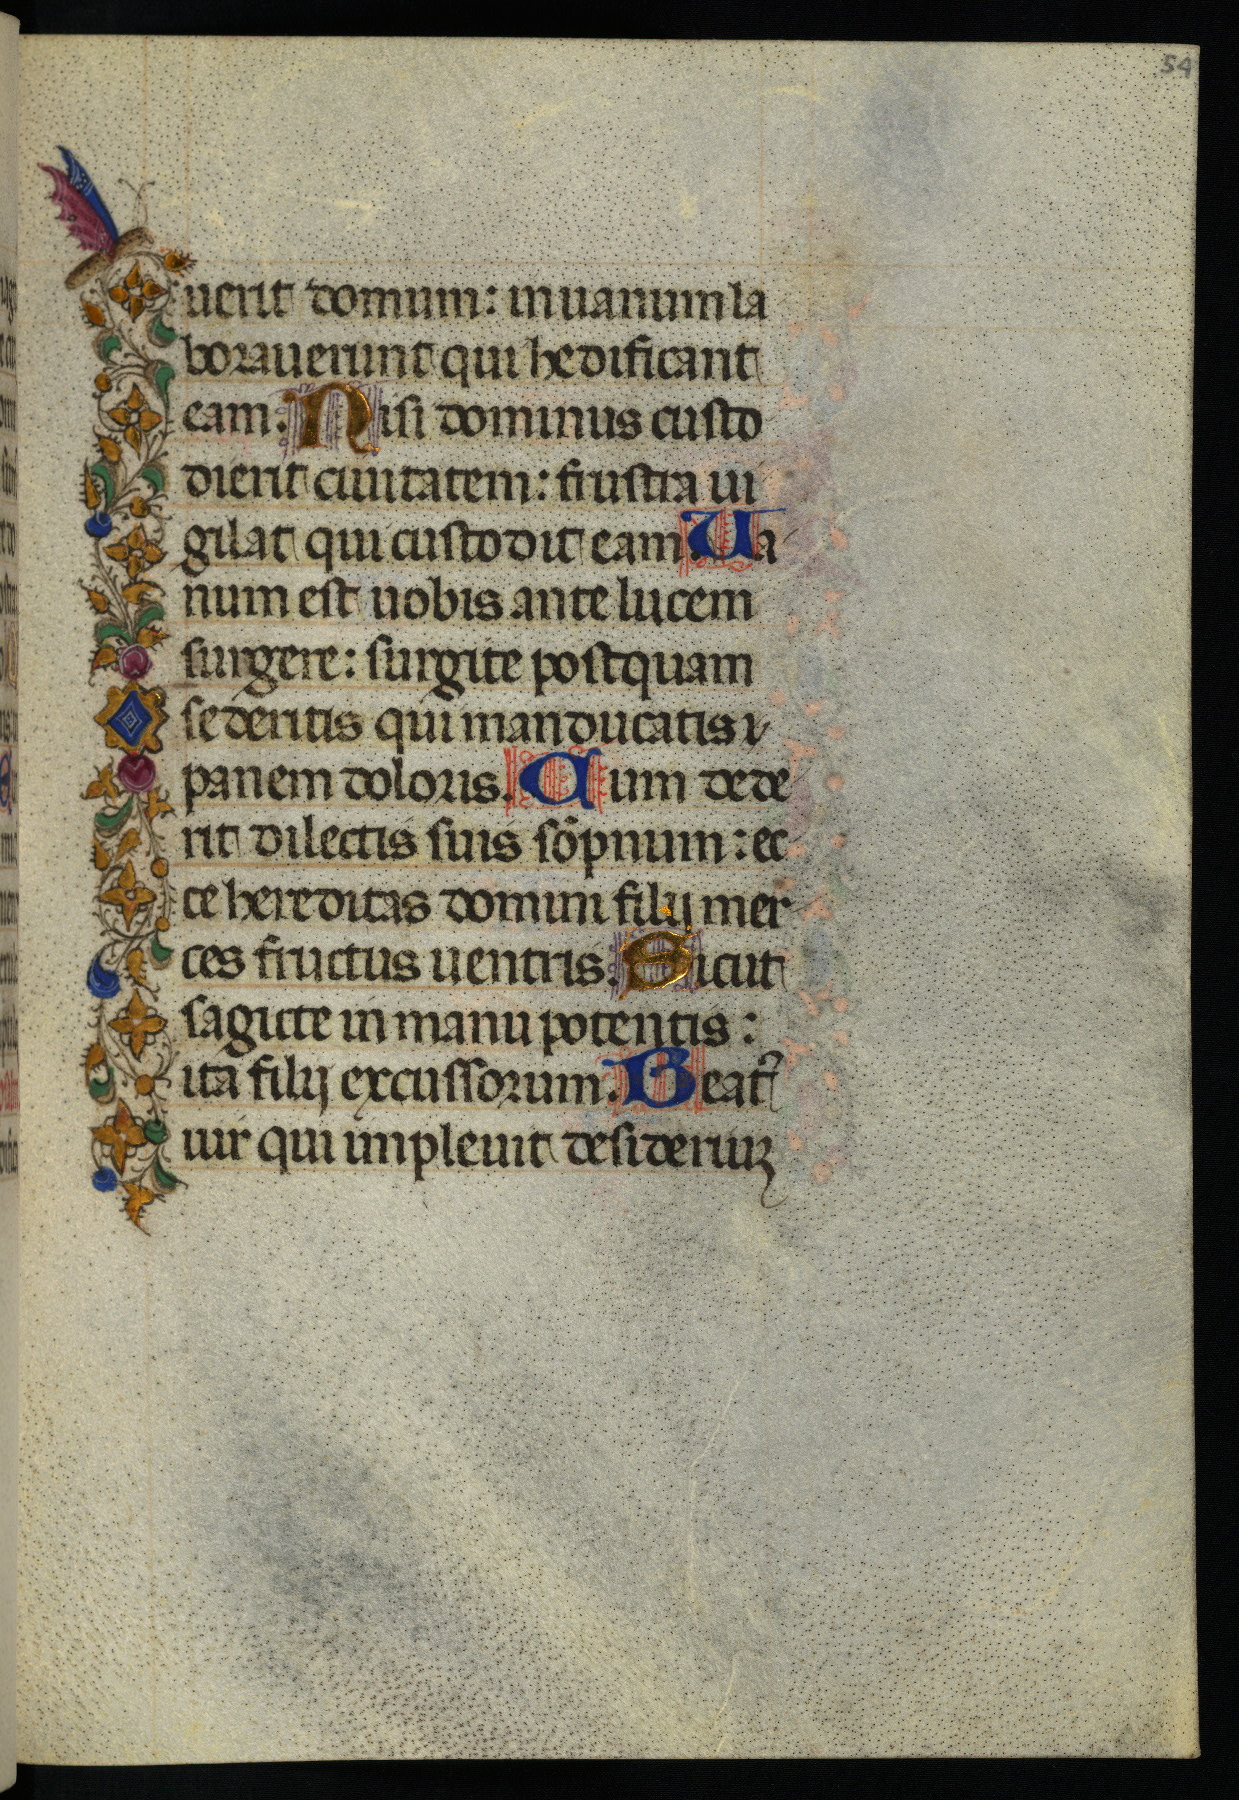 54
uerit domum: inuanum la
borauerunt qui hedificant
eam. Nisi dominus custo
dierit ciuitatem: frustra ui
gilat qui custodit eam. Ua
num est uobis ante lucem
surgere: surgite postquam
sederitis qui manducatis
panem doloris. Cum dede
rit dilectis suis sōpnum: ec
ce hereditas domini filij mer
ces fructus uentris. Sicut
sagicte in manu potentis:
ita filij excussorum. Beatꝰ
uir qui impleuit desideriuꝫ